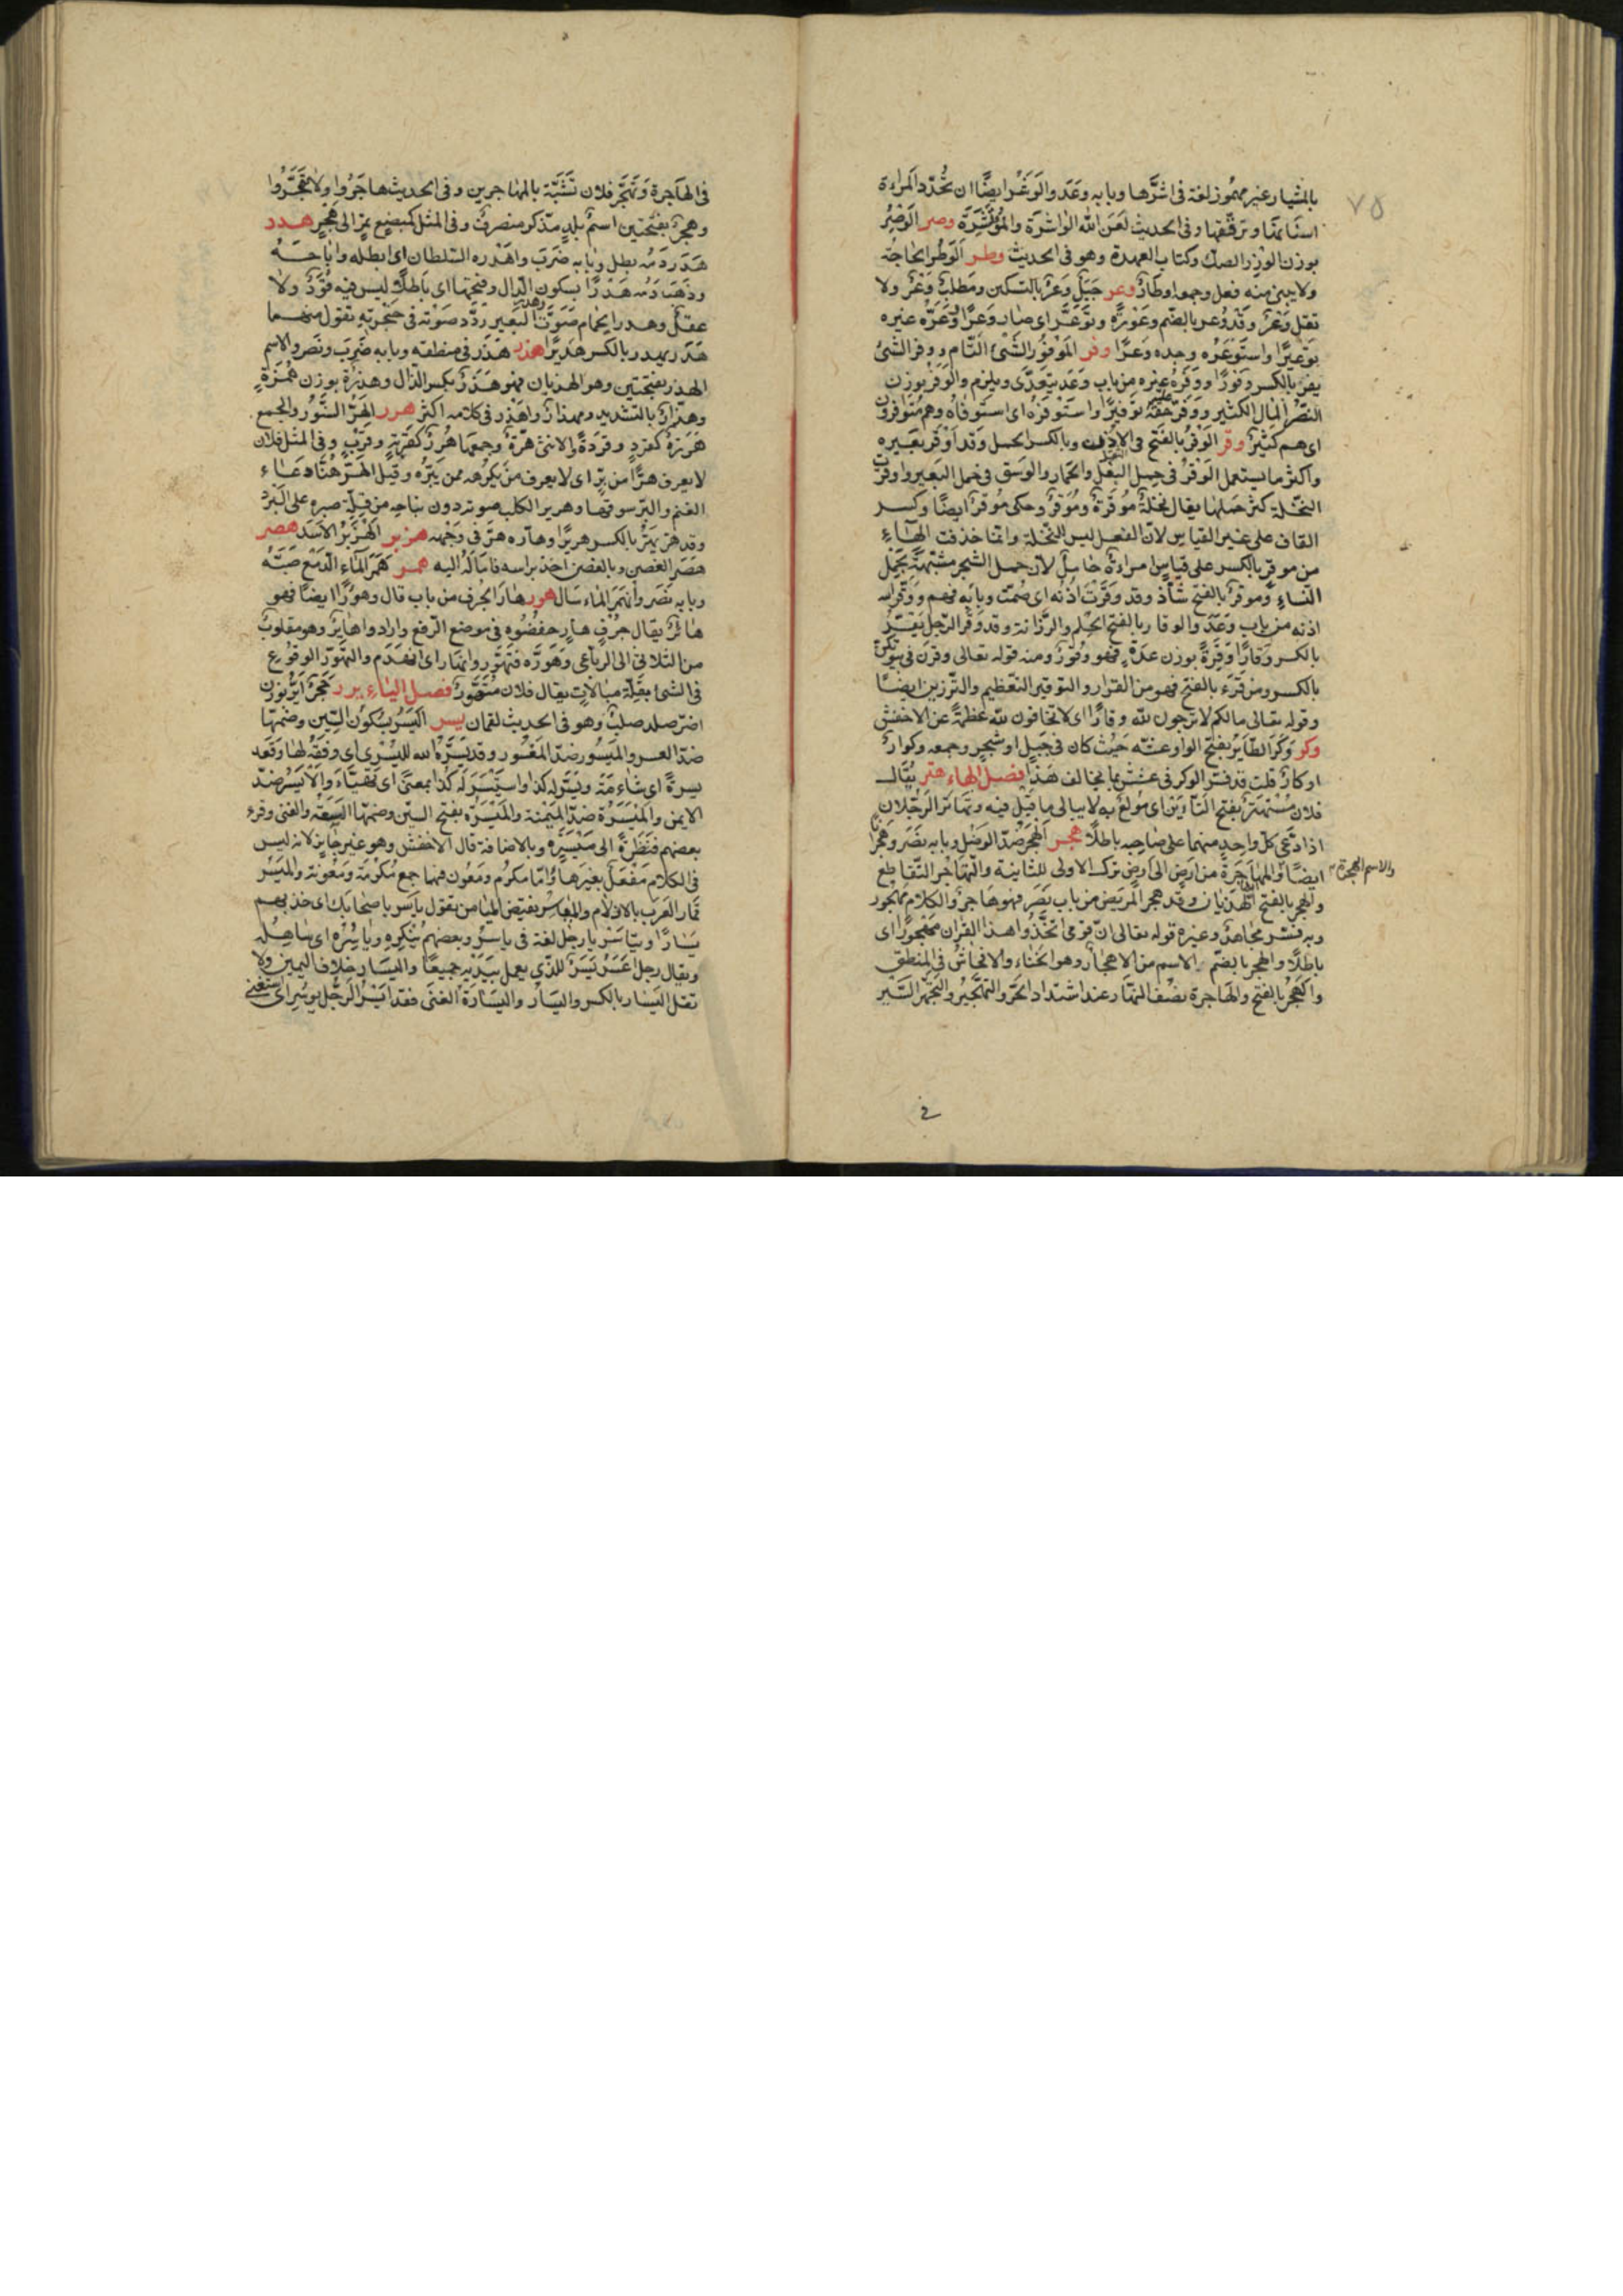 ٧٥
بالمئشار غير مهموز لغة فى اشرها وبابه وعد والوشر ايضا ان تحدد المراءة
اسنانها وترققها وفى الحديث لعن الله الواشرة والمؤتشرة وصر الوصر
بوزن الوزر الصك وكتاب العهدة وهو فى الحديث وطر الوطر الحاجة
ولا يبنى منه فعل وجمعه اوطار وعر جبل وعر بالتسكين ومطلب وعر ولا
تقل وعر وقد وعر بالضم وعورة وتوعر اى صار وعرا ووعره غيره
توعيرا واستوعره وجده وعرا وفر الموفور الشئ التام ووفر الشئ
يفر بالكسر وفورا ووفره غيره من باب وعد يتعدى ويلزم والوفر بوزن
النصر المال الكثير ووفر عليه حقه توفيرا واستوفره اى استوفاه وهم متوافرون
اى هم كثير وقر الوقر بالفتح الثقل فى الاذن وبالكسر الحمل وقد اوقر بعيره
واكثر ما يستعمل الوقر فى حمل البغل والحمار والوسق فى حمل البعير واوقرت
النخلة كثر حملها يقال نخلة موقرة وموقر وحكى موقر ايضا وكسر
القاف على غير القياس لان الفعل ليس للنخلة وانما حذفت الهاء
من موقر بالكسر على قياس امراءة حامل لان حمل الشجر مشبه بحمل
النساء وموقر بالفتح شاذ وقد وقرت اذنه اى صمت وبابه فهم ووقر الله
اذنه من باب وعد والوقار بالفتح الحلم والرزانة وقد وقر الرجل يقر
بالكسر وقارا وقرة بوزن عدة فهو وقور ومنه قوله تعالى وقرن فى بيوتكن
بالكسر ومن قرء بالفتح فهو من القرار والتوقير التعظيم والترزين ايضا
وقوله تعالى مالكم لا ترجون لله وقارا اى لا تخافون لله عظمة عن الاخفش
وكر وكر الطاير بفتح الواو عشه حيث كان فى جبل او شجر وجمعه وكور
اوكار قلت قد فسر الوكر فى عشش بما يخالف هذا فصل الهاء هتر يقال
فلان مستهتر بفتح التاوين اى مولع به لا يبالى ما قيل فيه وتهاتر الرجلان
اذا ادعى كل واحد منهما على صاحبه باطلا هجر الهجر ضد الوصل وبابه نصر وهجرانا
ايضا والمهاجرة من ارض الى ارض ترك الاولى للثانية والتهاجر التقاطع
والاسم الهجرة
والهجر بالفتح الهذيان وقد هجر المريض من باب نصر فهو هاجر والكلام مهجور
وبه فسر مجاهد وغيره قوله تعالى ان قومى اتخذوا هذا القران مهجورا اى
باطلا والهجر بالضم الاسم من الاهجار وهو الخناء والافحاش فى المنطق
والهجر بالفتح والهاجرة نصف النهار عند اشتداد الحر والتهجير والتهجر السير
فى الهاجرة وتهجر فلان تشبه بالمهاجرين وفى الحديث هاجروا ولا تهجروا
وهجر بفتحتين اسم بلد مذكر منصرف وفى المثل كمبضع تمر الى هجر هدر
هدر دمه بطل وبابه ضرب واهدره السلطان اى ابطله واباحه
وذهب دمه هدرا بسكون الدال وفتحها اى باطلا ليس فيه قود ولا
عقل وهدر الحمام صوت وهدر البعير ردد صوته فى حنجرته تقول منهما
هدر يهدر بالكسر هديرا هذر هذر فى منطقه وبابه ضرب ونصر والاسم
الهذر بفتحتين وهو الهذيان فهو هذر بكسر الذال وهذرة بوزن همزة
وهذار بالتشديد ومهذار واهذر فى كلامه اكثر هرر الهر السنور والجمع
هررة كقرد وقردة والانثى هرة وجمعها هرر كقربة وقرب وفى المثل فلان
لا يعرف هرا من بر اى لا يعرف من يكرهه ممن يبره وقيل الهر هنا دعاء
الغنم والبر سوقها وهرير الكلب صوته دون نباحه من قلة صبره على البرد
وقد هر يهر بالكسر هريرا وهاره هر فى وجهه هزبر الهزبر الاسد هصر
هصر الغصن وبالغصن اخذ براسه فاماله اليه همر همر الماء الدمع صبه
وبابه نصر وانهمر الماء سال هور هار الجرف من باب قال وهورا ايضا فهو
هائر يقال جرف هار خفضوه فى موضع الرفع وارادوا هاير وهو مقلوب
من الثلاثى الى الرباعى وهوره فتهور وانهار اى انهدم والتهور الوقوع
فى الشئ بقلة مبالات يقال فلان متهور فصل الياء يرر حجر اير بوزن
اضر صلد صلب وهو فى الحديث لقمان يسر اليسر بسكون السين وضمها
ضد العسر والميسور ضد المعسور وقد يسره الله لليسرى اى وفقه لها وقعد
يسرة اى شاءمة وتيسر له كذا واستيسر له كذا بمعنى اى تهيأ والايسر ضد
الايمن والميسرة ضد الميمنة والميسرة بفتح السين وضمها السعة والغنى وقرء
بعضهم فنظرة الى ميسره وبالاضافة قال الاخفش وهو غير جايز لانه ليس
فى الكلام مفعل بغير هاء واما مكرم ومعون فهما جمع مكرمة ومعونة والميسر
قمار العرب بالازلام والمياسر نقيض الميامن تقول ياسر باصحابك اى خذ بهم
يسارا وتياسر يا رجل لغة فى ياسر وبعضهم ينكره وياسره اى ساهله
ويقال رجل اعسر يسر للذى يعمل بيديه جميعا واليسار خلاف اليمين ولا
تقل اليسار بالكسر واليسار واليسارة الغنى فقد ايسر الرجل يوسر اى استغنى